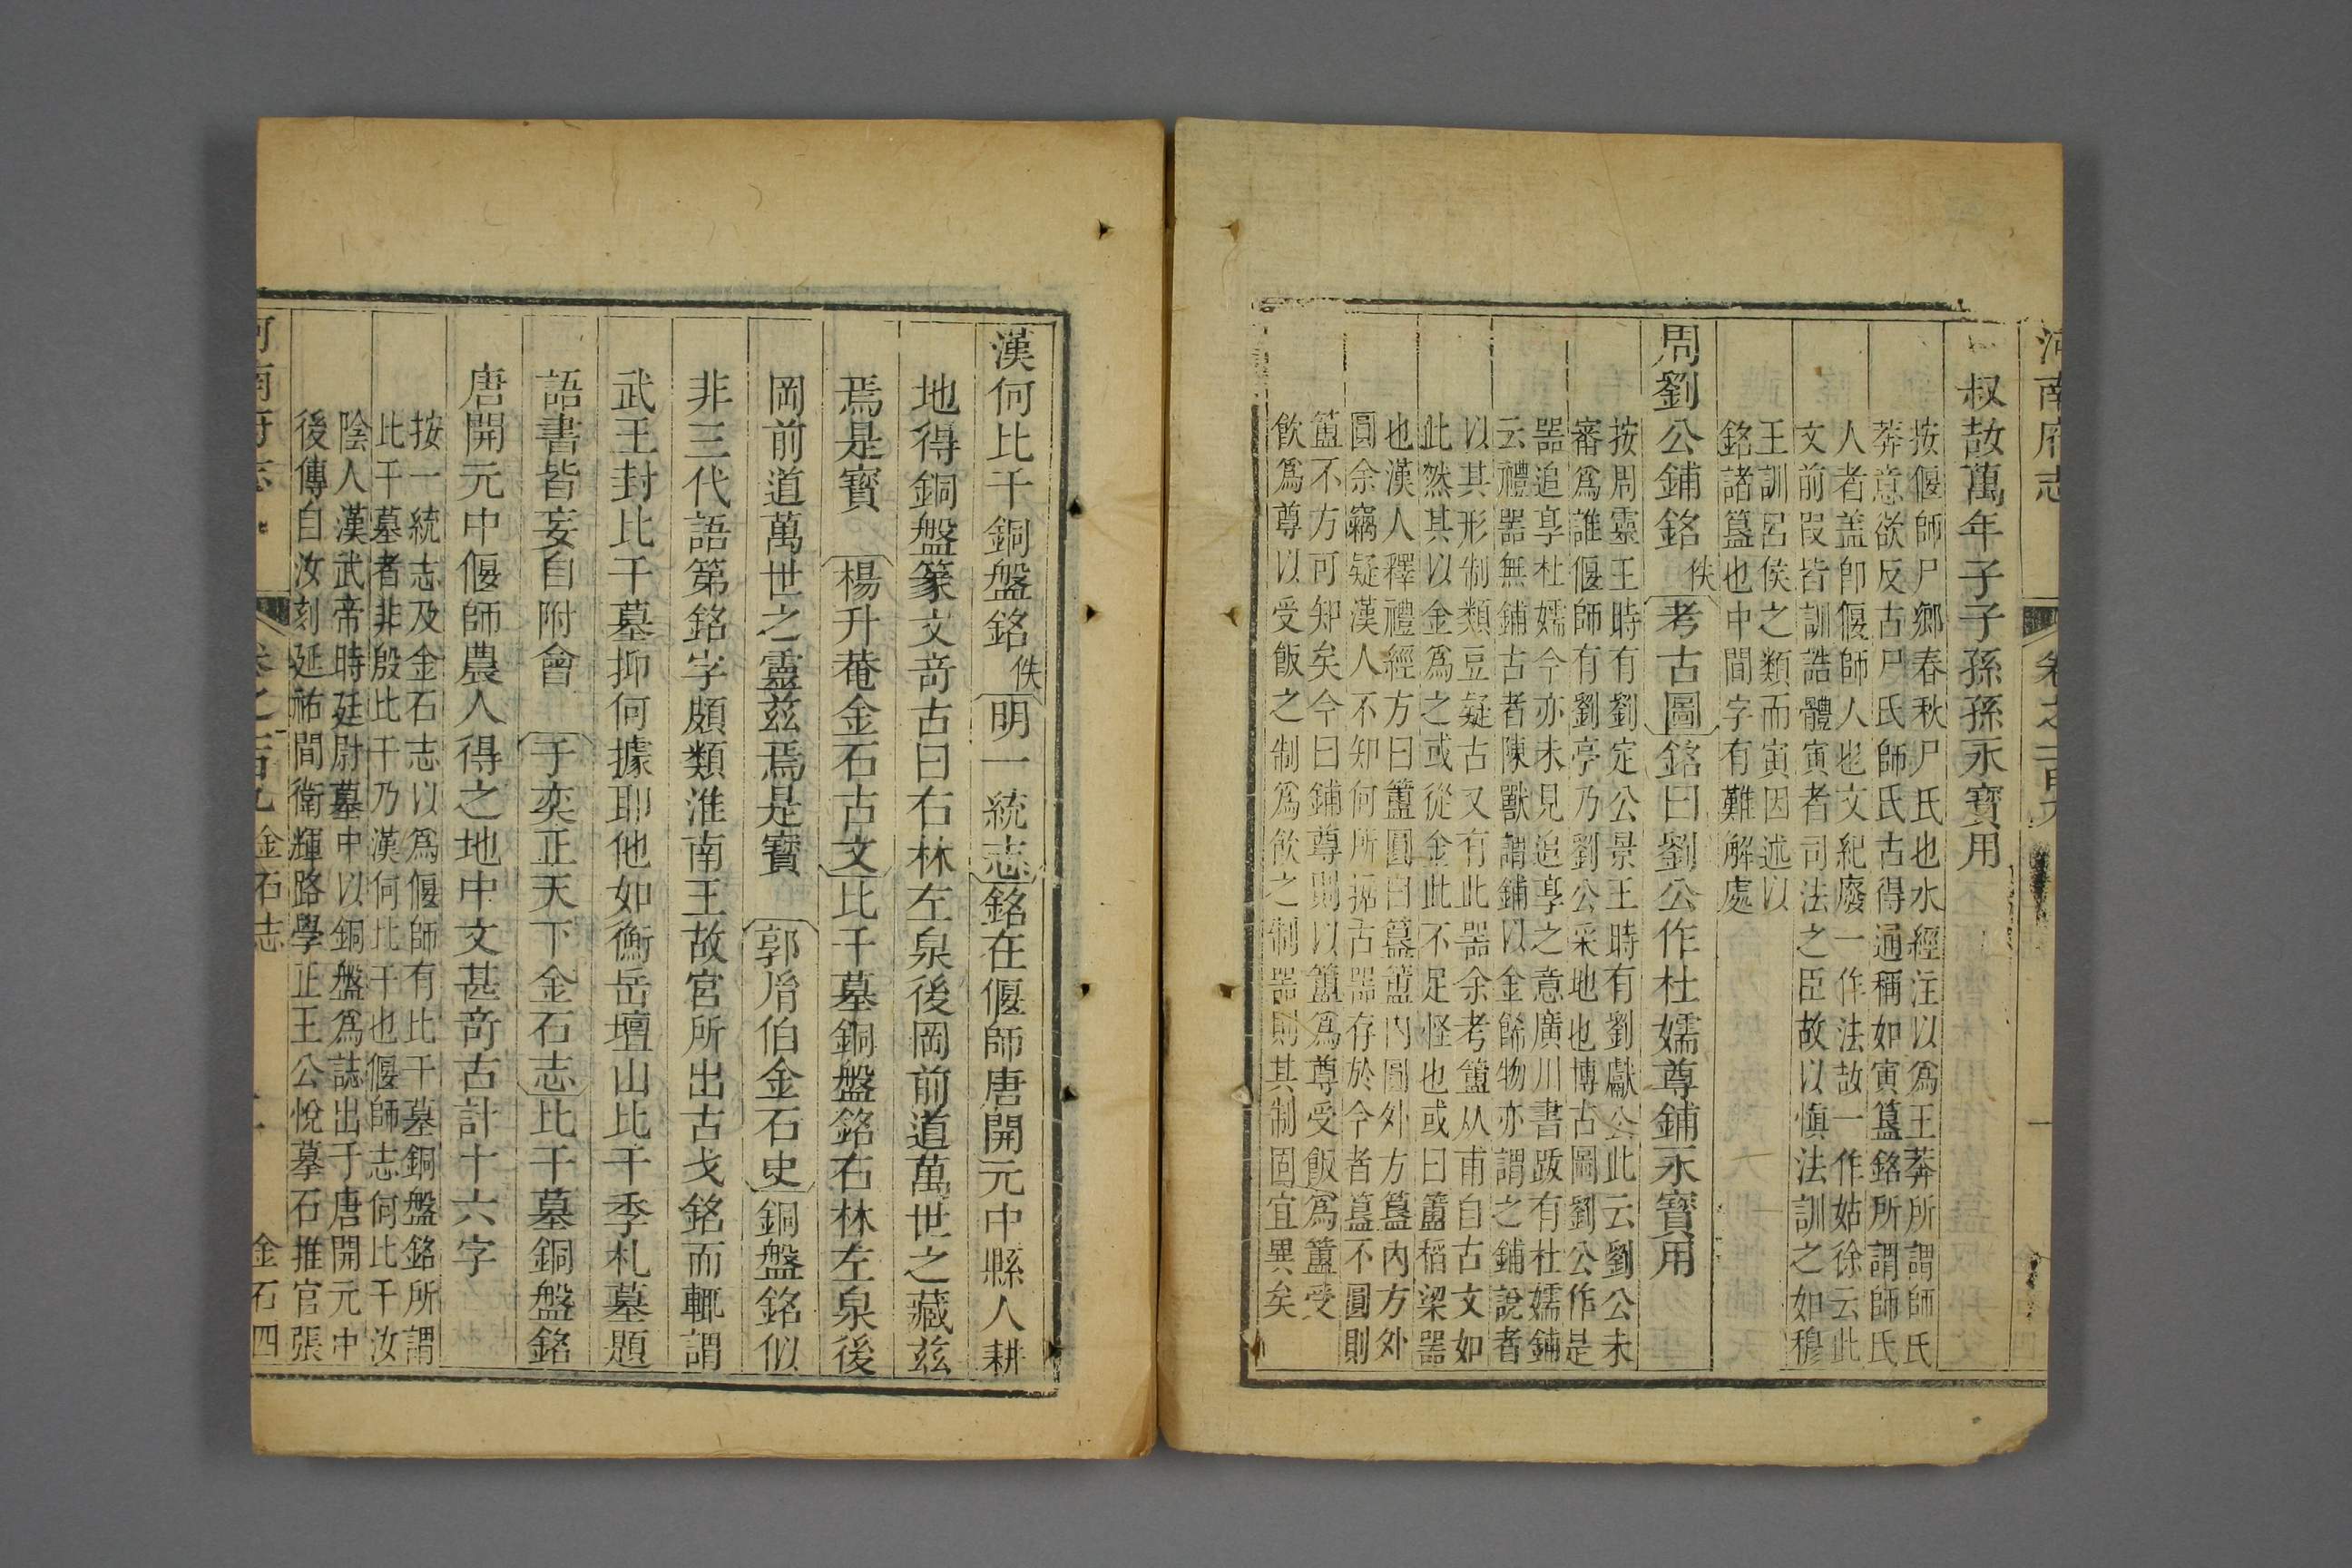 河南府志
卷之一百九
叔㪤萬年子子孫孫永寶用
按偃師尸鄉春秋尸氏也水經注以爲王莽所謂師氏
莽意欲反古尸氏師氏古得通稱如寅簋銘所謂師氏
人者盖卽偃師人也文紀廢一作法故一作姑徐云此
文前叚皆訓誥體寅者司法之臣故以愼法訓之如穆
王訓呂侯之類而寅因述以
銘諸簋也中間字有難解處
周劉公鋪銘佚考古圖銘曰劉公作杜嬬尊鋪永寶用
按周靈王時有劉定公景王時有劉獻公此云劉公未
審爲誰偃師有劉亭乃劉公采地也博古圖劉公作是
器追享杜嬬今亦未見追享之意廣川書跋有杜嬬鋪
云禮器無鋪古者陳獸謂鋪以金餙物亦謂之鋪說者
以其形制類豆疑古又有此器余考簠从甫自古文如
此然其以金爲之或從金此不足怪也或曰簠稻梁器
也漢人釋禮經方曰簠圓曰簋簠内圓外方簋内方外
圓余竊疑漢人不知何所㨿古器存於今者簋不圓則
簠不方可知矣今曰鋪尊則以簠爲尊受飯爲簠受
飲爲尊以受飯之制爲飲之制器則其制固宜異矣
漢何比干銅盤銘佚明一統志銘在偃師唐開元中縣人耕
地得銅盤篆文竒古曰右林左泉後岡前道萬世之藏兹
焉是寶　楊升菴金石古文比干墓銅盤銘右林左泉後
岡前道萬世之靈兹焉是寶　郭胤伯金石史銅盤銘似
非三代語第銘字頗類淮南王故宮所出古戈銘而輒謂
武王封比干墓抑何據耶他如衡岳壇山比干季札墓題
語書皆妄自附會　于奕正天下金石志比干墓銅盤銘
唐開元中偃師農人得之地中文甚竒古計十六字
按一統志及金石志以爲偃師有比干墓銅盤銘所謂
比干墓者非殷比干乃漢何比干也偃師志何比干汝
陰人漢武帝時廷尉墓中以銅盤爲誌出于唐開元中
後傳自汝刻延祐間衛輝路學正王公悅摹石推官張
河南府志
卷之一百九　金石志
金石四